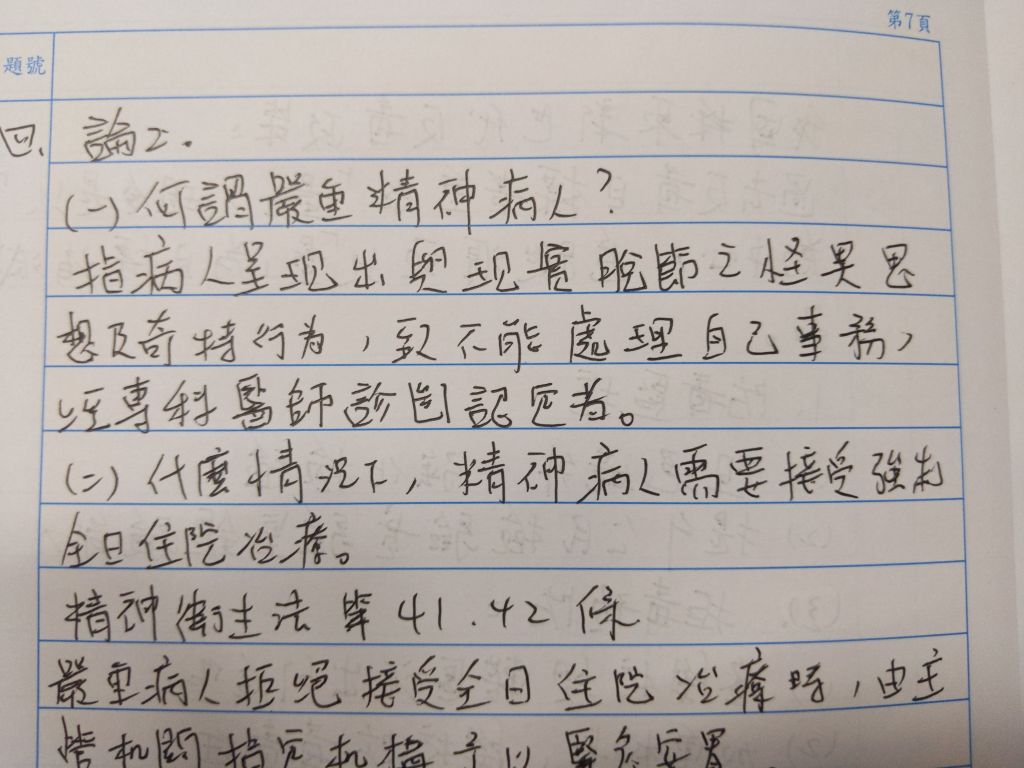 第7頁
題號
四、論2.
(一)何謂嚴重精神病人?
指病人呈現出與現實脫節之怪異思
想及奇特行為,致不能處理自己事務,
經專科醫師診斷認定者。
(二)什麼情況下,精神病人需要接受強制
全日住院治療。
精神衛生法第41.42條
嚴重病人拒絕接受全日住院治療時,由主
管机関指定机構予以緊急安置